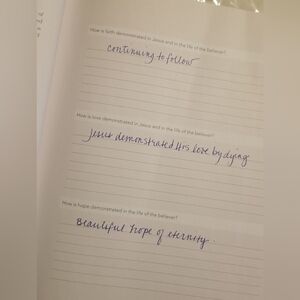 How is faith demonstrated in Jesus and in the life of the believer?
continuing to follow
How is love demonstrated in Jesus and in the life of the believer?
Jesus demonstrated His love by dying
How is hope demonstrated in the life of the believer?
Beautiful hope of eternity.